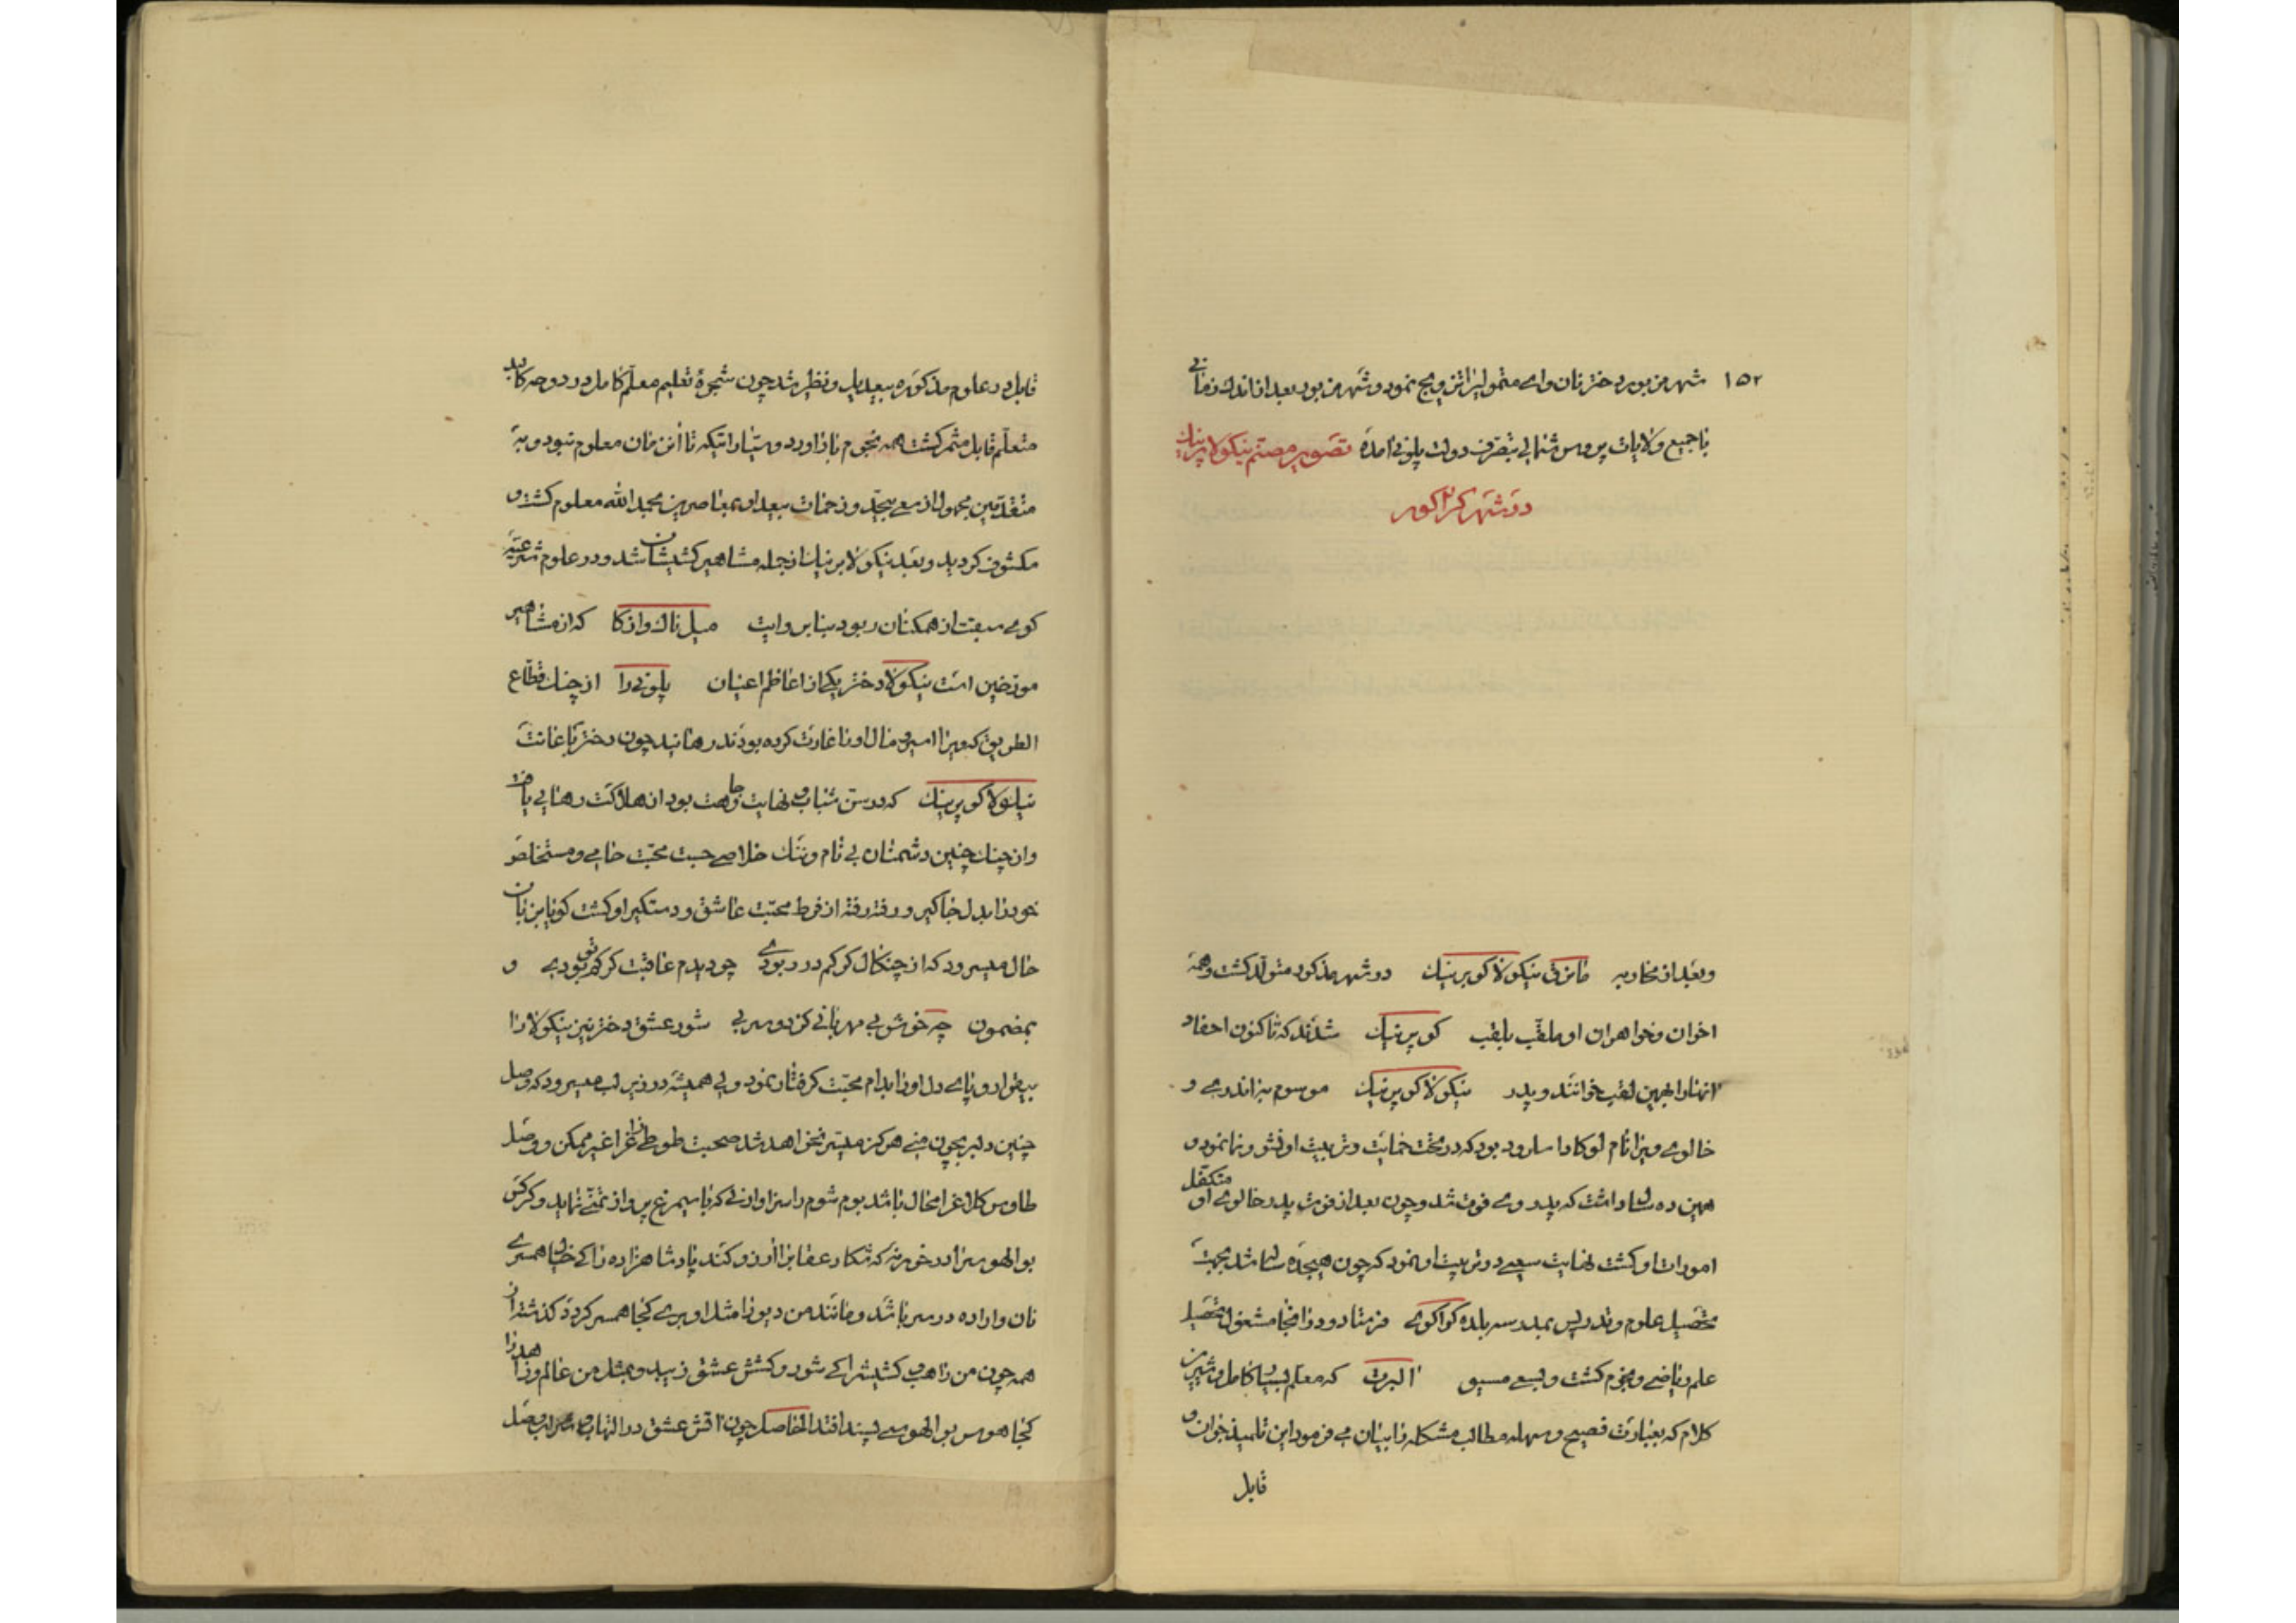 ۱۵۲ شهر من بور دختر نان وای متمولی را تزویج نمود و شهر من بور بعد از اندک زمانی
با جمیع ولایات پروس شمالی بتصرف دولت پلونی آمده تصویر مصتم نیکولا پرنیک
در شهر کراکور
وبعد از محاربه مارنی نیکولا کوپرنیک در شهر مذکور متولد کشت و همه
اخوان وخواهران او ملقب بلقب کوپرنیک شدند که تا کنون احفاد
آنها را بهمین لقب خوانند و پدر نیکولا کوپرنیک موسوم بر اندری و
خالوی ویرا نام لوکا دا سارود بود که در تحت حمایت و تربیت او نشو و نما نمود و
همین ده سال داشت که پدر وی فوت شد و چون بعد از فوت پدر خالوی او متکفل
امورات او کشت نهایت سعی در تربیت او نمود که چون هیجده ساله شد بجهت
تحصیل علوم و تدریس بمدرسه بلده کراکوی فرستاد و در آنجا مشغول تحصیل
علم ریاضی و نجوم کشت و بسعی مسیو البرت که معلم بسیار کامل و شیرین
کلام که بعبارت فصیح و سهله مطالب مشکله را بیان می فرمود این تلمیذ جوان و
قابل
قابل در علوم مذکوره بیعدیل و نظیر شد چون شجرهٔ تعلیم معلم کامل در دوحه کابد
متعلم قابل مثمر کشت همه نجوم باز آورد و سیارا تیکه تا آن زمان معلوم نبود و به
متقدمین مجهول از سعی بیحد و زحمات بیعد او بمعاصرین بحمد الله معلوم کشت و
مکشوف کردید و بعد نیکولا برنیک از جمله مشاهیر کشیشان شد و در علوم شرعیه
کوی سبقت از همکنان ربود بنا بروایت میل ناک وارکا که از مشاهیر
مورخین است نیکولا دختر یکی از اعاظم اعیان پلونی را از چنک قطاع
الطریق که ویرا اسیر و مال اورا غارت کرده بودند رهانید چون دختر باعانت
نیکولا کوپرنیک که در سن شباب و نهایت وجاهت بود از هلاکت رهایی یافت
و از چنک چنین دشمنان بی نام و ننک خلاصی جست محبت حامی و مستخلص
خود را بدل جاکیر و رفته رفته از فرط محبت عاشق و دستکیر او کشت کویا بزبان
حال میسرود که از چنکال کرکم در ربودی چو دیدم عاقبت کرکم تو بودی و
بمضمون چه خوش بی مهربانی کز دو سر بی شور عشق دختر نیز نیکولا را
بیقرار و پای دل او را بدام محبت کرفتار نمود ولی همیشه در زیر لب میسرود که وصل
چنین دلبر بچون منی هرکز میسر نخواهد شد صحبت طوطی زاغ را غیر ممکن و وصل
طاوس کلاغ را محال باشد بوم شوم را سزاوار نی که با سیمرغ پرواز تمنی نماید و کرکس
بوالهوس را در خور نه که شکار عنقا را آرزو کند پادشاهزاده را کی خیال همسری
نان وا زاده در سر باشد و مانند من دیو را مثل او پری کجا همسر کردد کذشته از
همه چون من راهب کشیش را کی شور و کشش عشق زیبد و بمثل من عالم و زاهد را
کجا هوس بوالهوسی پسند افتد الحاصل چون آتش عشق در التهاب و شراب وصل